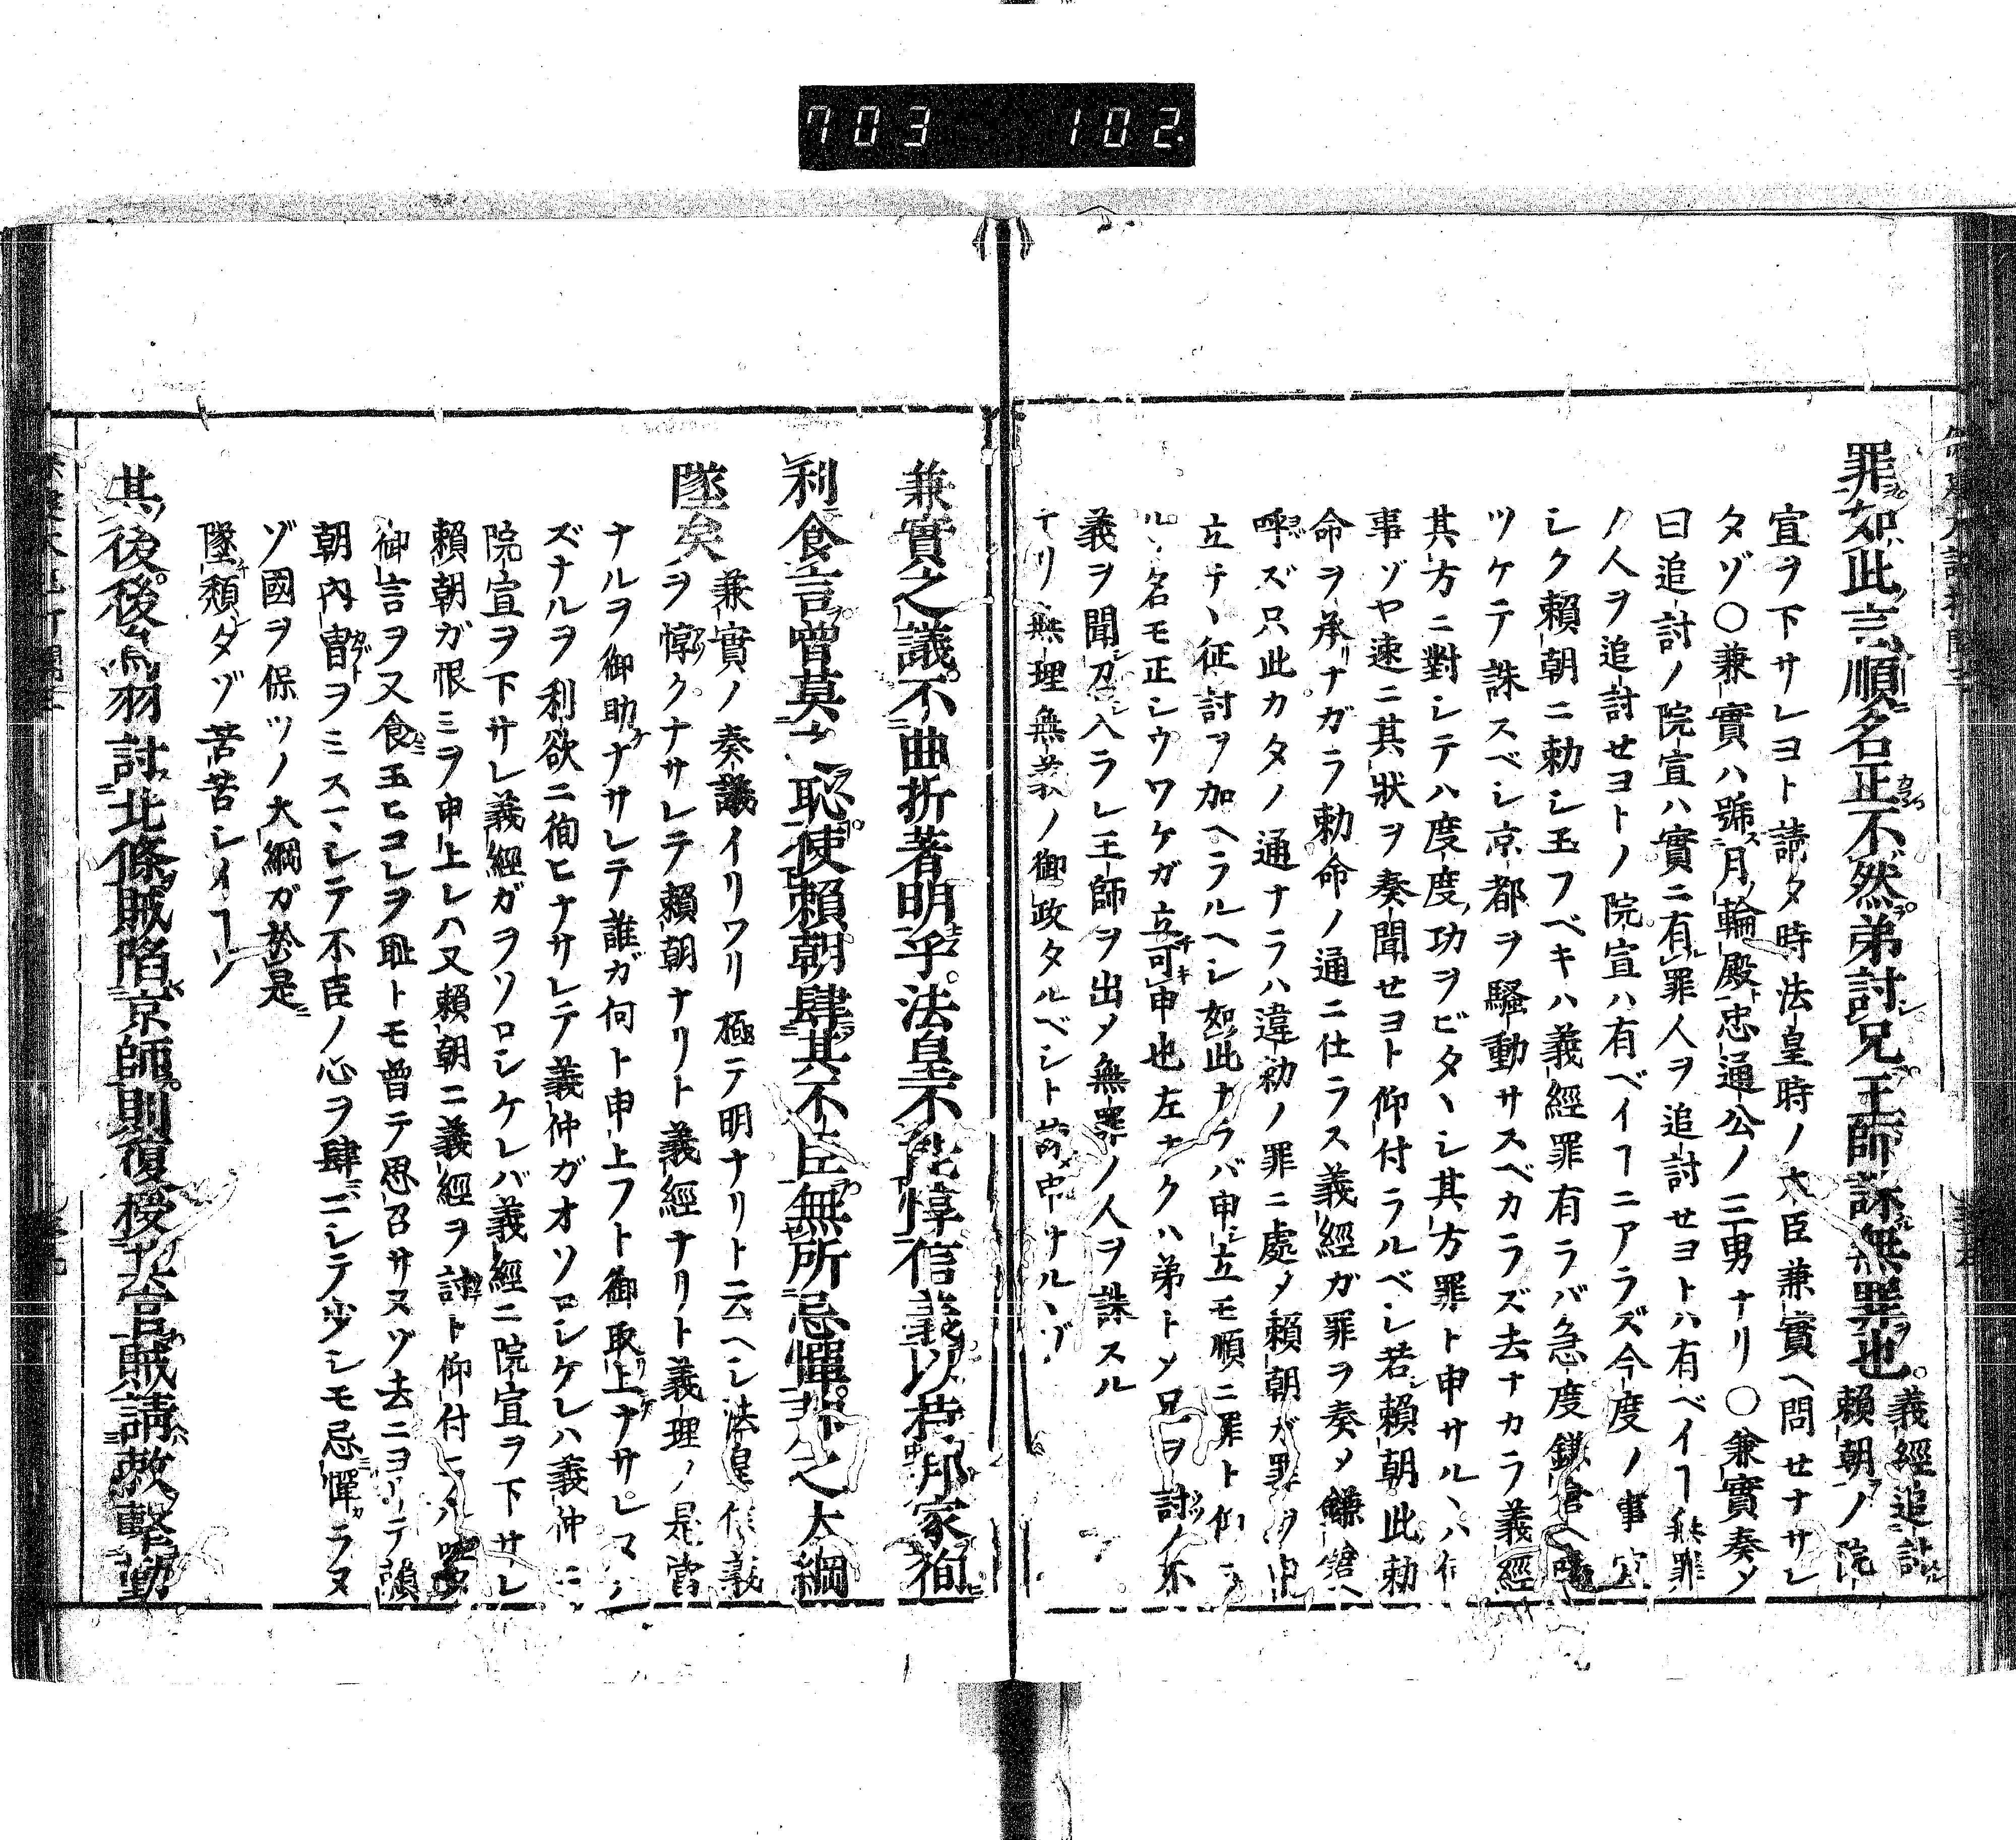 703 102
罪如此言順名正不然弟討兄王師誅無罪也。義經追討
賴朝ノ院
宣ヲ下サレヨト請タ時法皇時ノ大臣兼實ヘ問セナサレ
タゾ〇兼實ハ號月輪殿忠通公ノ三男ナリ〇兼實奏メ
曰追討ノ院宣ハ實ニ有罪人ヲ追討セヨトハ有ベイヿ無罪
ノ人ヲ追討セヨトノ院宣ハ有ベイヿニアラズ今度ノ事宜
シク賴朝ニ勅シ玉フベキハ義經罪有ラバ急度鎌倉ヘ
ツケテ誅スベシ京都ヲ騷動サスベカラズ去ナカラ義經
其方ニ對シテハ度度功ヲビタヽシ其方罪ト申サルヽハ何
事ゾヤ速ニ其狀ヲ奏聞セヨト仰付ラルベシ若賴朝此勅
命ヲ承ナガラ勅命ノ通ニ仕ラス義經ガ罪ヲ奏メ鎌倉ヘ
呼ズ只此カタノ通ナラハ違勅ノ罪ニ處メ賴朝ガ罪ヲ申
立テヽ征討ヲ加ヘラルヘシ如此ナラバ申立モ順ニ罪ト仰ラ
ルヽ名モ正シウワケガ立可申也左ナクハ弟トメ兄ヲ討ノ不
義ヲ聞召入ラレ王師ヲ出メ無罪ノ人ヲ誅スル
ナリ無理無義ノ御政タルベシト申ナルヽゾ
兼實之議不曲折著明乎。法皇不能惇信義以持邦家徇
利食言曾莫之恥使賴朝肆其不臣無所忌憚邦之大綱
墜矣兼實ノ奏議イリワリ極テ明ナリト云ヘシ法皇信義
ヲ惇クナサレテ賴朝ナリト義經ナリト義理ノ是當
ナルヲ御助ナサレテ誰ガ何ト申上フト御取上ナサレマジ
ズナルヲ利欲ニ徇ヒナサレテ義仲ガオソロシケレハ義仲ニ
院宣ヲ下サレ義經ガヲソロシケレバ義經ニ院宣ヲ下サレ
賴朝ガ恨ミヲ申上レハ又賴朝ニ義經ヲ討ト仰付ラル
御言ヲ又食玉ヒコレヲ恥トモ曾テ思召サヌゾ去ニヨリテ賴
朝內冑ヲミスーシテ不臣ノ心ヲ肆ニシテ少シモ忌憚ラヌ
ゾ國ヲ保ツノ大綱ガ於是
墜頽タゾ苦苦シイヿゾ
其後後鳥羽討北條賊陷京師。則復授其官賊請敕擊勤